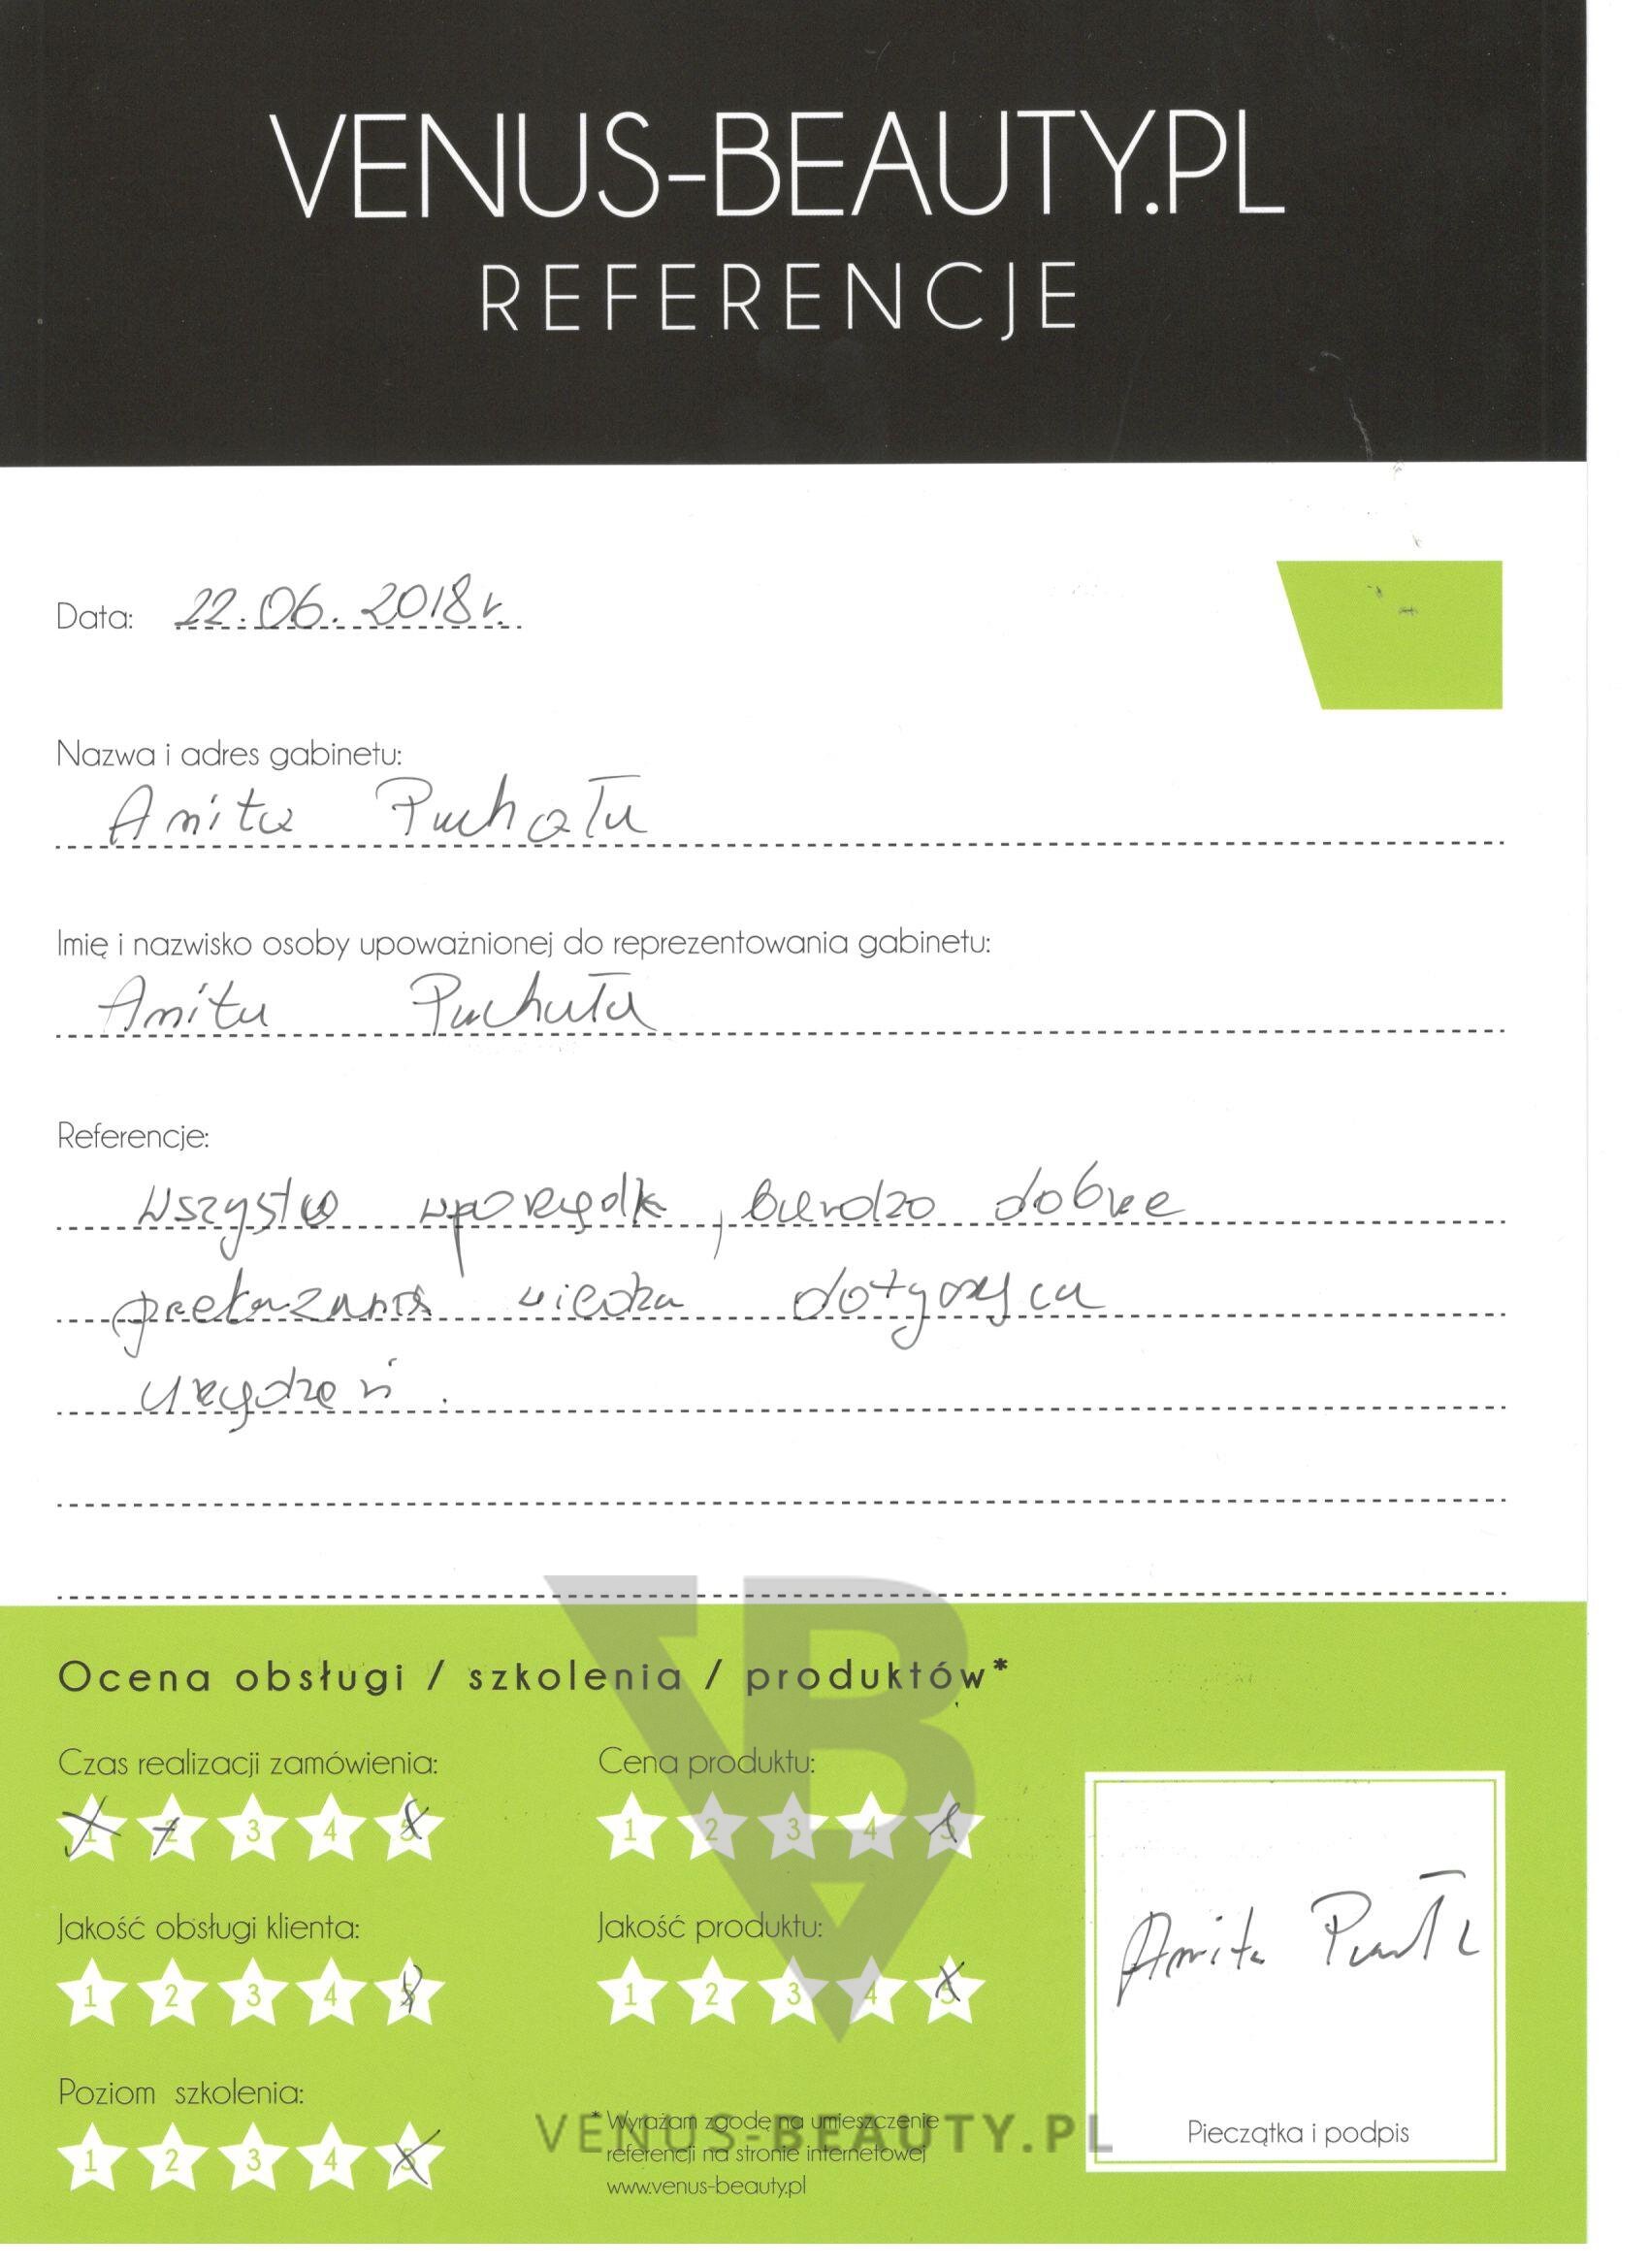 VENUS-BEAUTY.PL
REFERENCJE
Data: 22.06.2018r.
Nazwa i adres gabinetu:
Anita Puchała
Imię i nazwisko osoby upoważnionej do reprezentowania gabinetu:
Anita Puchała
Referencje:
Wszystko wporządk, bardzo dobrze
przekazana wiedza dotycząca
urządzeń.
Ocena obsługi / szkolenia / produktów*
Czas realizacji zamówienia: Cena produktu:
1 2 3 4 5 1 2 3 4 5
Jakość obsługi klienta: Jakość produktu:
1 2 3 4 5 1 2 3 4 5
Anita
Poziom szkolenia:
1 2 3 4 5
* Wyrażam zgodę na umieszczenie
referencji na stronie internetowej
www.venus-beauty.pl
Pieczątka i podpis
VB
VENUS-BEAUTY.PL